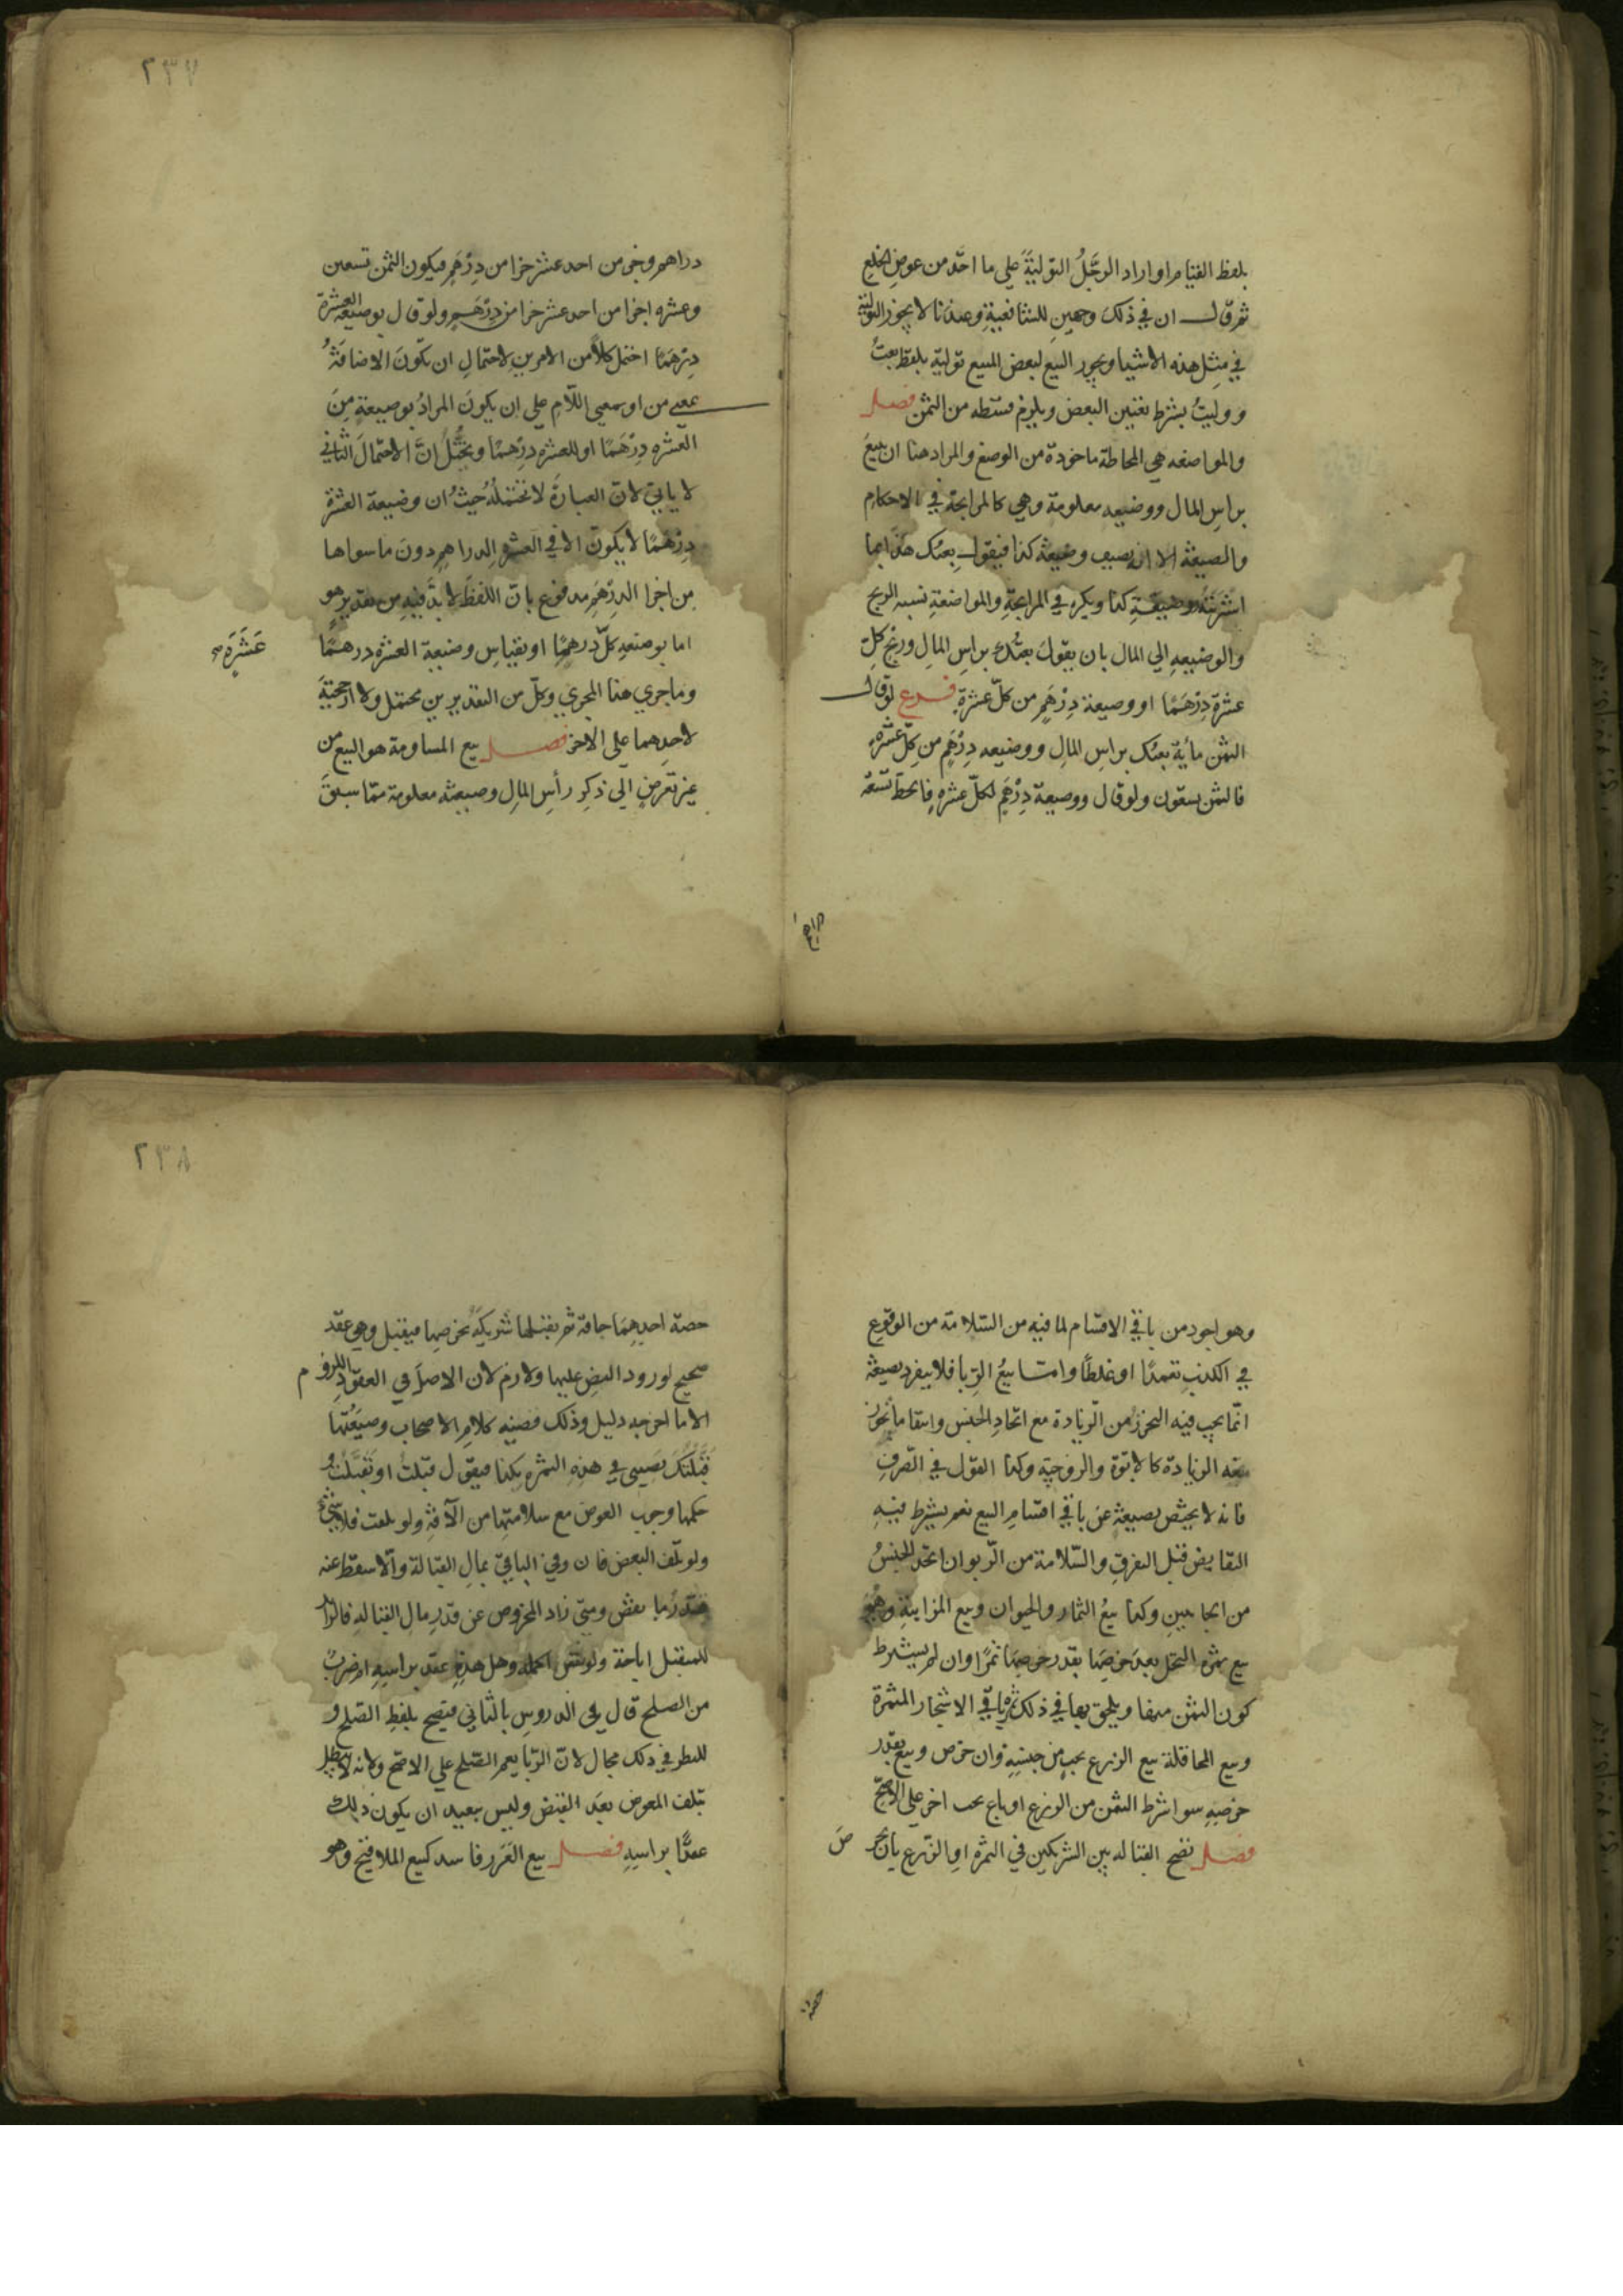 بلفظ القيام او اراد الرجل التولية على ما اخذ من عوض الخلع
ثم قال ان في ذلك وجهين للشافعية وعندنا لا يجوز التولية
في مثل هذه الاشيا ويجوز البيع لبعض المبيع تولية بلفظ بعت
ووليت بشرط تعيين البعض ويلزم قسطه من الثمن فصل
والمواضعه هي المحاطة ماخوذة من الوضع والمراد هنا ان يبيع
براس المال ووضيعه معلومة وهي كالمرابحة في الاحكام
والصيغة الا انه يضيف وضيعة كذا فيقول بعتك هذا بما
اشتريته ووضيعة كذا ويكره في المرابحة والمواضعة نسبه الربح
والوضيعه الي المال بان يقول بعتك براس المال وربح كل
عشرة درهما او وضيعة درهم من كل عشرة فرع لو قال
الثمن مأية بعتك براس المال ووضيعه درهم من كل عشرة
فالثمن تسعون ولو قال ووضيعة درهم لكل عشره فالحط تسعة
دراهم
٢٣٧
دراهم وجزء من احد عشر جزا من درهم فيكون الثمن تسعين
وعشره اجزا من احد عشر جزا من درهم ولو قال بوضيعة العشرة
درهما احتمل كلا من الامرين لاحتمال ان تكون الاضافة
بمعني من او بمعني اللام علي ان يكون المراد بوضيعة من
العشره درهما او للعشره درهما ويحتمل ان الاحتمال الثاني
لا ياتي لان العبارة لا تحتمله حيث ان وضيعة العشرة
درهما لا يكون الا في العشره الدراهم دون ما سواها
من اجزا الدرهم مدفوع بان اللفظ لا بد فيه من تقدير هو
اما بوضيعه كل درهما او بقياس وضيعة العشره درهما
عشرة صح
وما جري هذا المجري وكل من التقديرين محتمل ولا ارجحية
لاحدهما على الاخر فصل بيع المساومة هو البيع من
غير تعرض الي ذكر رأس المال وصيغته معلومة مما سبق
وهو اجود من باقي الاقسام لما فيه من السلامة من الوقوع
في الكذب تعمدا او غلطا واما بيع الربا فلا يفرد بصيغة
انما يجب فيه التحرز من الزيادة مع اتحاد الجنس وانتفا ما تجوز
معه الزيادة كالابوة والزوجية وكذا القول في الصرف
فانه لا يختص بصيغة عن باقي اقسام البيع نعم يشترط فيه
التقابض قبل التفرق والسلامة من الربو ان اتحد الجنس
من الجانبين وكذا بيع الثمار والحيوان وبيع المزابنة وهو
بيع ثمره النخل بعد خرصها بقدر خرصها تمرا وان لم يشترط
كون الثمن منها ويلحق بها في ذلك ثمرة باقي الاشجار المثمرة
وبيع المحاقلة بيع الزرع بحب من جنسه وان خرص وبيع بقدر
خرصه سوا شرط الثمن من الزرع او باع بحب اخر على الاصح
فصل تصح القباله بين الشريكين في الثمره او الزرع بان
حصة
٢٣٨
حصة احدهما جافة ثم يقبلها شريكه بخرصها فيقبل وهو عقد
صحيح لورود النص عليها ولازم لان الاصل في العقود اللزوم
الا ما اخرجه دليل وذلك قضيه كلام الاصحاب وصيغتها
قبلتك نصيبي في هذه الثمره بكذا فيقول قبلت او تقبلت و
حكمها وجوب العوض مع سلامتها من الآفة ولو تلفت فلا شيء
ولو تلف البعض فان وفي الباقي بمال القبالة والا سقط عنه
قدر ما نقص ومتي زاد المخروص عن قدر مال القباله فالزايد
للمتقبل اباحة ولو نقص اكمله وهل هذه عقد براسه او ضرب
من الصلح قال في الدروس بالثاني فيصح بلفظ الصلح و
للنظر في ذلك مجال لان الربا يعم الصلح علي الاصح ولانه لا يبطل
بتلف المعوض بعد القبض وليس ببعيد ان يكون ذلك
عقدا براسه فصل بيع الغرر فاسد كبيع الملاقيح وهو